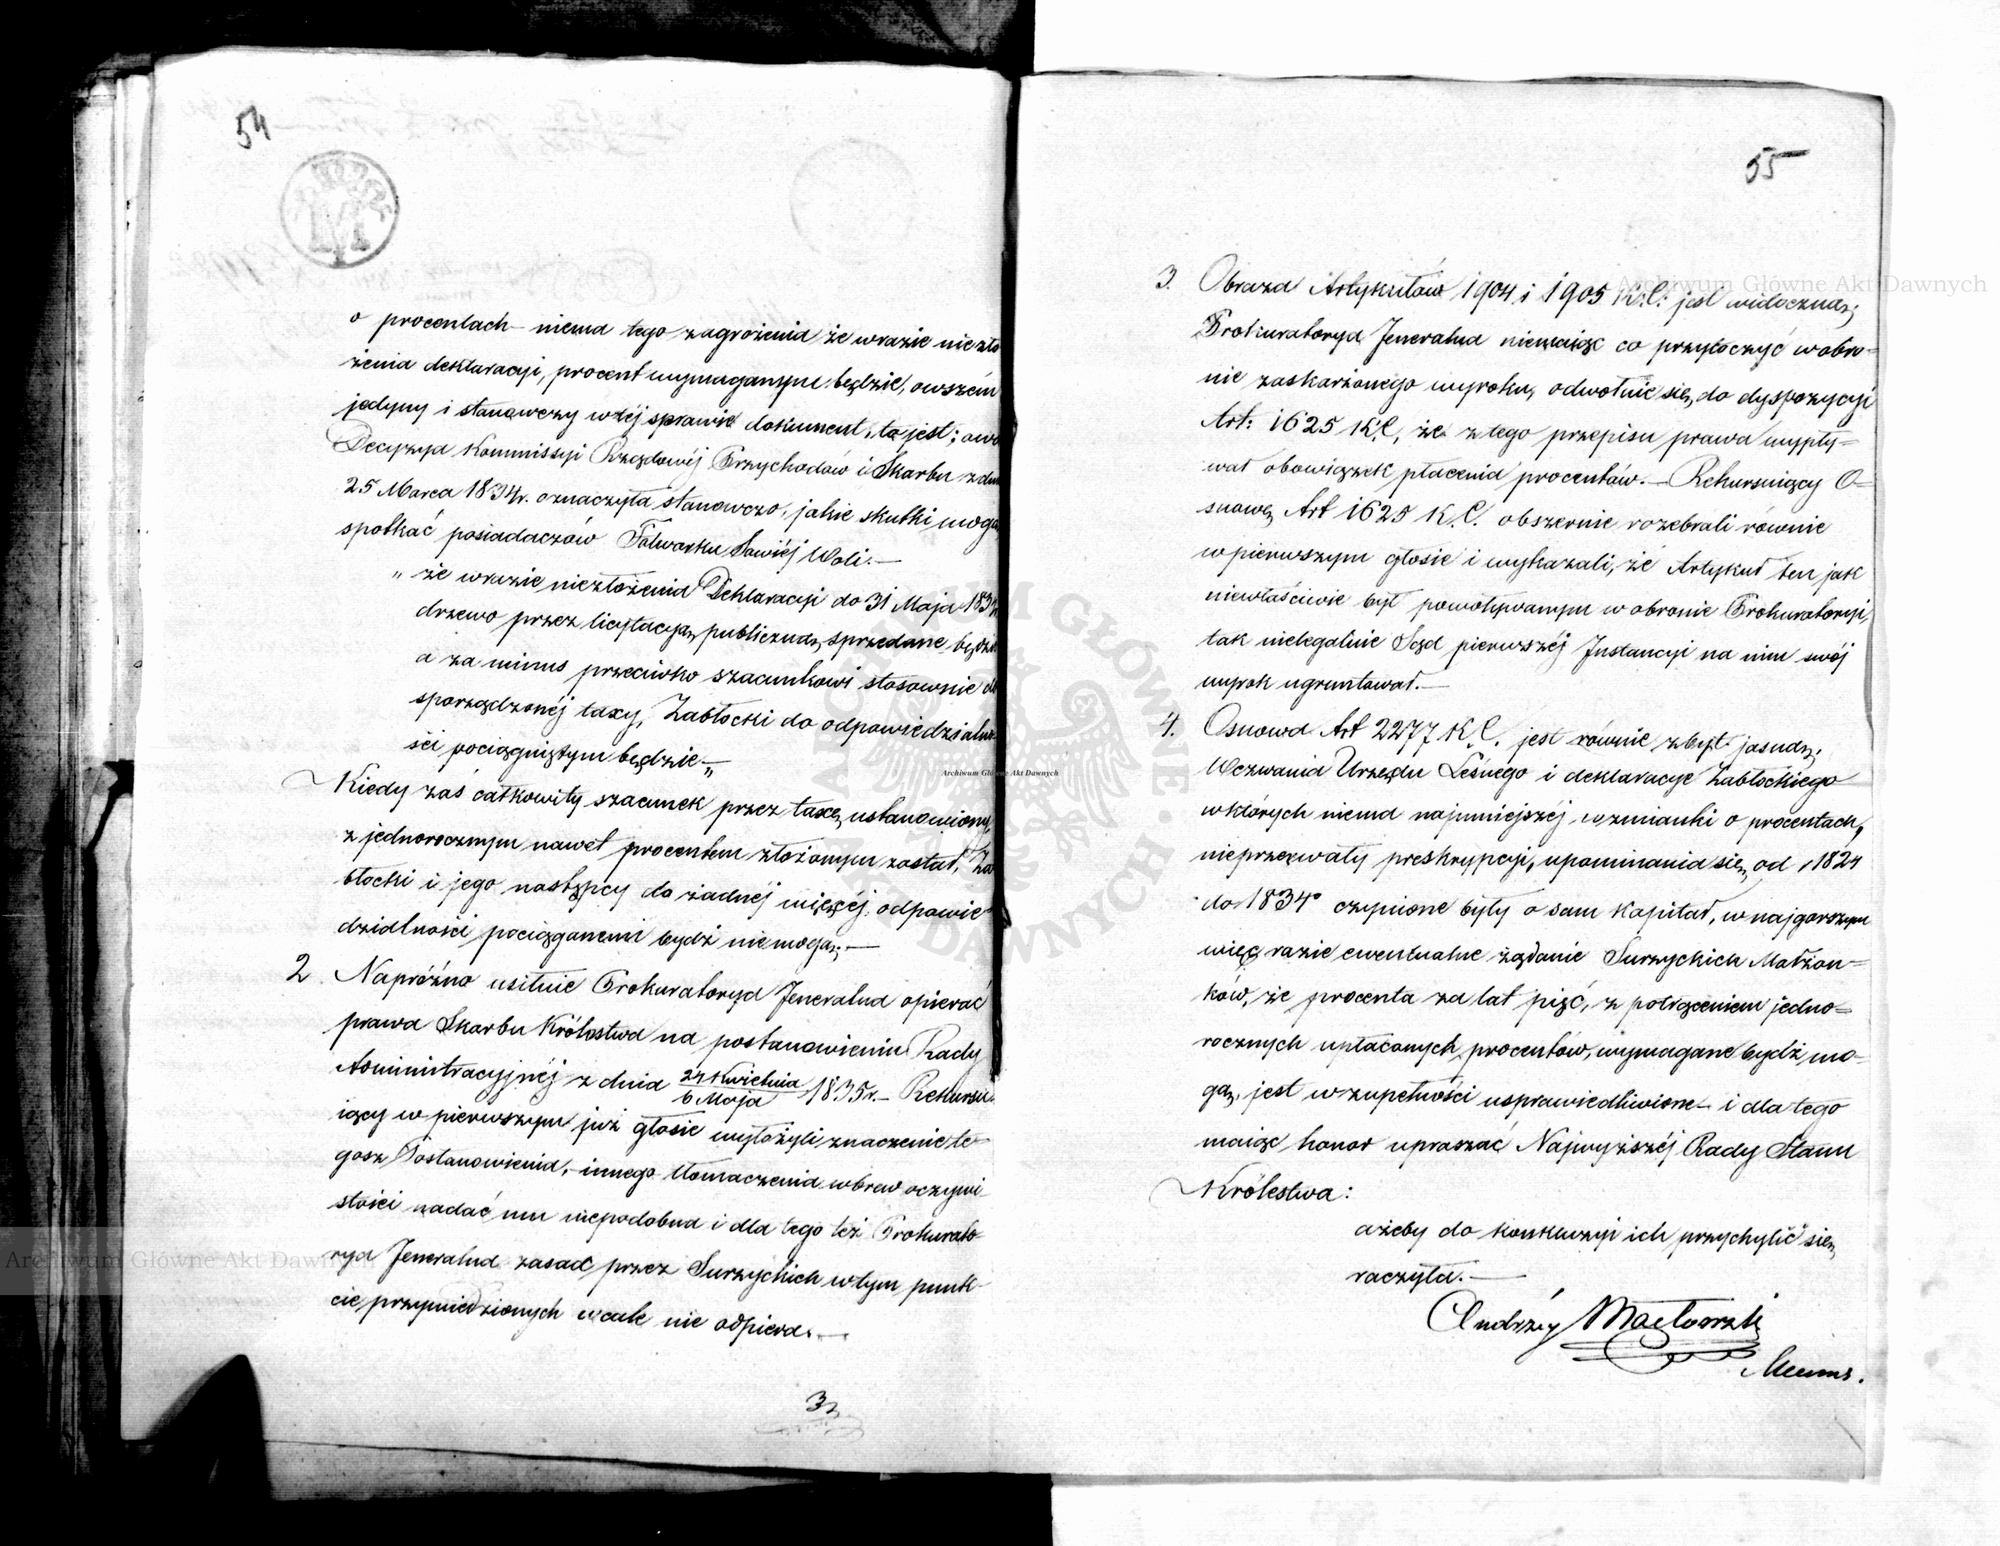 54
o procentach – niema tego zagrożenia że wrazie niezło
żenia deklaracyi, procent wymaganym będzie, owszem
jedyny i stanowczy wtéj sprawie dokument, to jest; owa
Decyzya Kommissyi Rządowéj Przychodów i Skarbu z dnia
25 Marca 1834r. oznaczyła stanowczo, jakie skutki mogą
spotkać posiadaczów Folwarku Sawiéj Woli. –
„ że wrazie niezłożenia Deklaracyi do 31 Maja 1834r.
drzewo przez licytacyą publiczną sprzedane będzie
a za minus przeciwko szacunkowi stosownie do
sporządzonéj taxy, Zabłocki do odpowiedzialno-
ści pociągniętym będzie – „
Kiedy zaś całkowity szacunek przez taxę ustanowiony,
z jednorocznym nawet procentem złożonym został, Za
błocki i jego następcy do żadnéj więcéj odpowie
dzialności pociąganemi bydź niemogą; –
2 Napróżno usiłuie Prokuratorya Jeneralna opierać
prawa Skarbu Królestwa na postanowieniu Rady
Administracyjnéj z dnia 24 Kwietnia / 6 Maja 1835r. – Rekursu
iący w pierwszym już głosie wyłożyli znaczenie te-
goż Postanowienia, – innego tłomaczenia wbrew oczywi-
stości nadać mu niepodobna i dla tego też Prokurato
rya Jeneralna zasad przez Surzyckich wtym punk-
cie przywiedzionych wcale nie odpiera. –
3
55
3. Obraza Artykułów 1904 i 1905 K.C. jest widoczną;
Prokuratorya Jeneralna niemaiąc co przytoczyć wobro-
nie zaskarżonego wyroku, odwołuie się do dyspozycyi
Art: 1625 K.C, że z tego przepisu prawa wypły-
wał obowiązek płacenia procentów. – Rekursuiący O-
snowę Art 1625 K.C. obszernie rozebrali równie
w pierwszym głosie i wykazali, że Artykuł ten jak
niewłaściwie był powoływanym w obronie Prokuratoryi,
tak nielegalnie Sąd pierwszéj Instancyi na nim swój
wyrok ugruntował. –
4. Osnowa Art 2277 K.C. jest równie zbyt jasną,
Wezwania Urzędu Leśnego i deklaracye Zabłockiego
wktórych niema najmniejszéj wzmianki o procentach,
nieprzerwały preskrypcyi, upominania się od 1824
do 1834o czynione były o sam Kapitał, w najgorszym
więc razie ewentualne żądanie Surzyckich Małżon-
ków, że procenta za lat pięć, z potrąceniem jedno-
rocznych upłaconych procentów, wymagane bydź mo-
gą, jest w zupełności usprawiedliwione – i dla tego
maiąc honor upraszać Najwyższéj Rady Stanu
Królestwa:
ażeby do konkluzyi ich przychylić się
raczyła. –
Andrzéy
Mecenas.
Archiwum Główne Akt Dawnych
Archiwum Główne Akt Dawnych
Archiwum Główne Akt Dawnych
ARCHIWUM GŁÓWNE AKT DAWNYCH